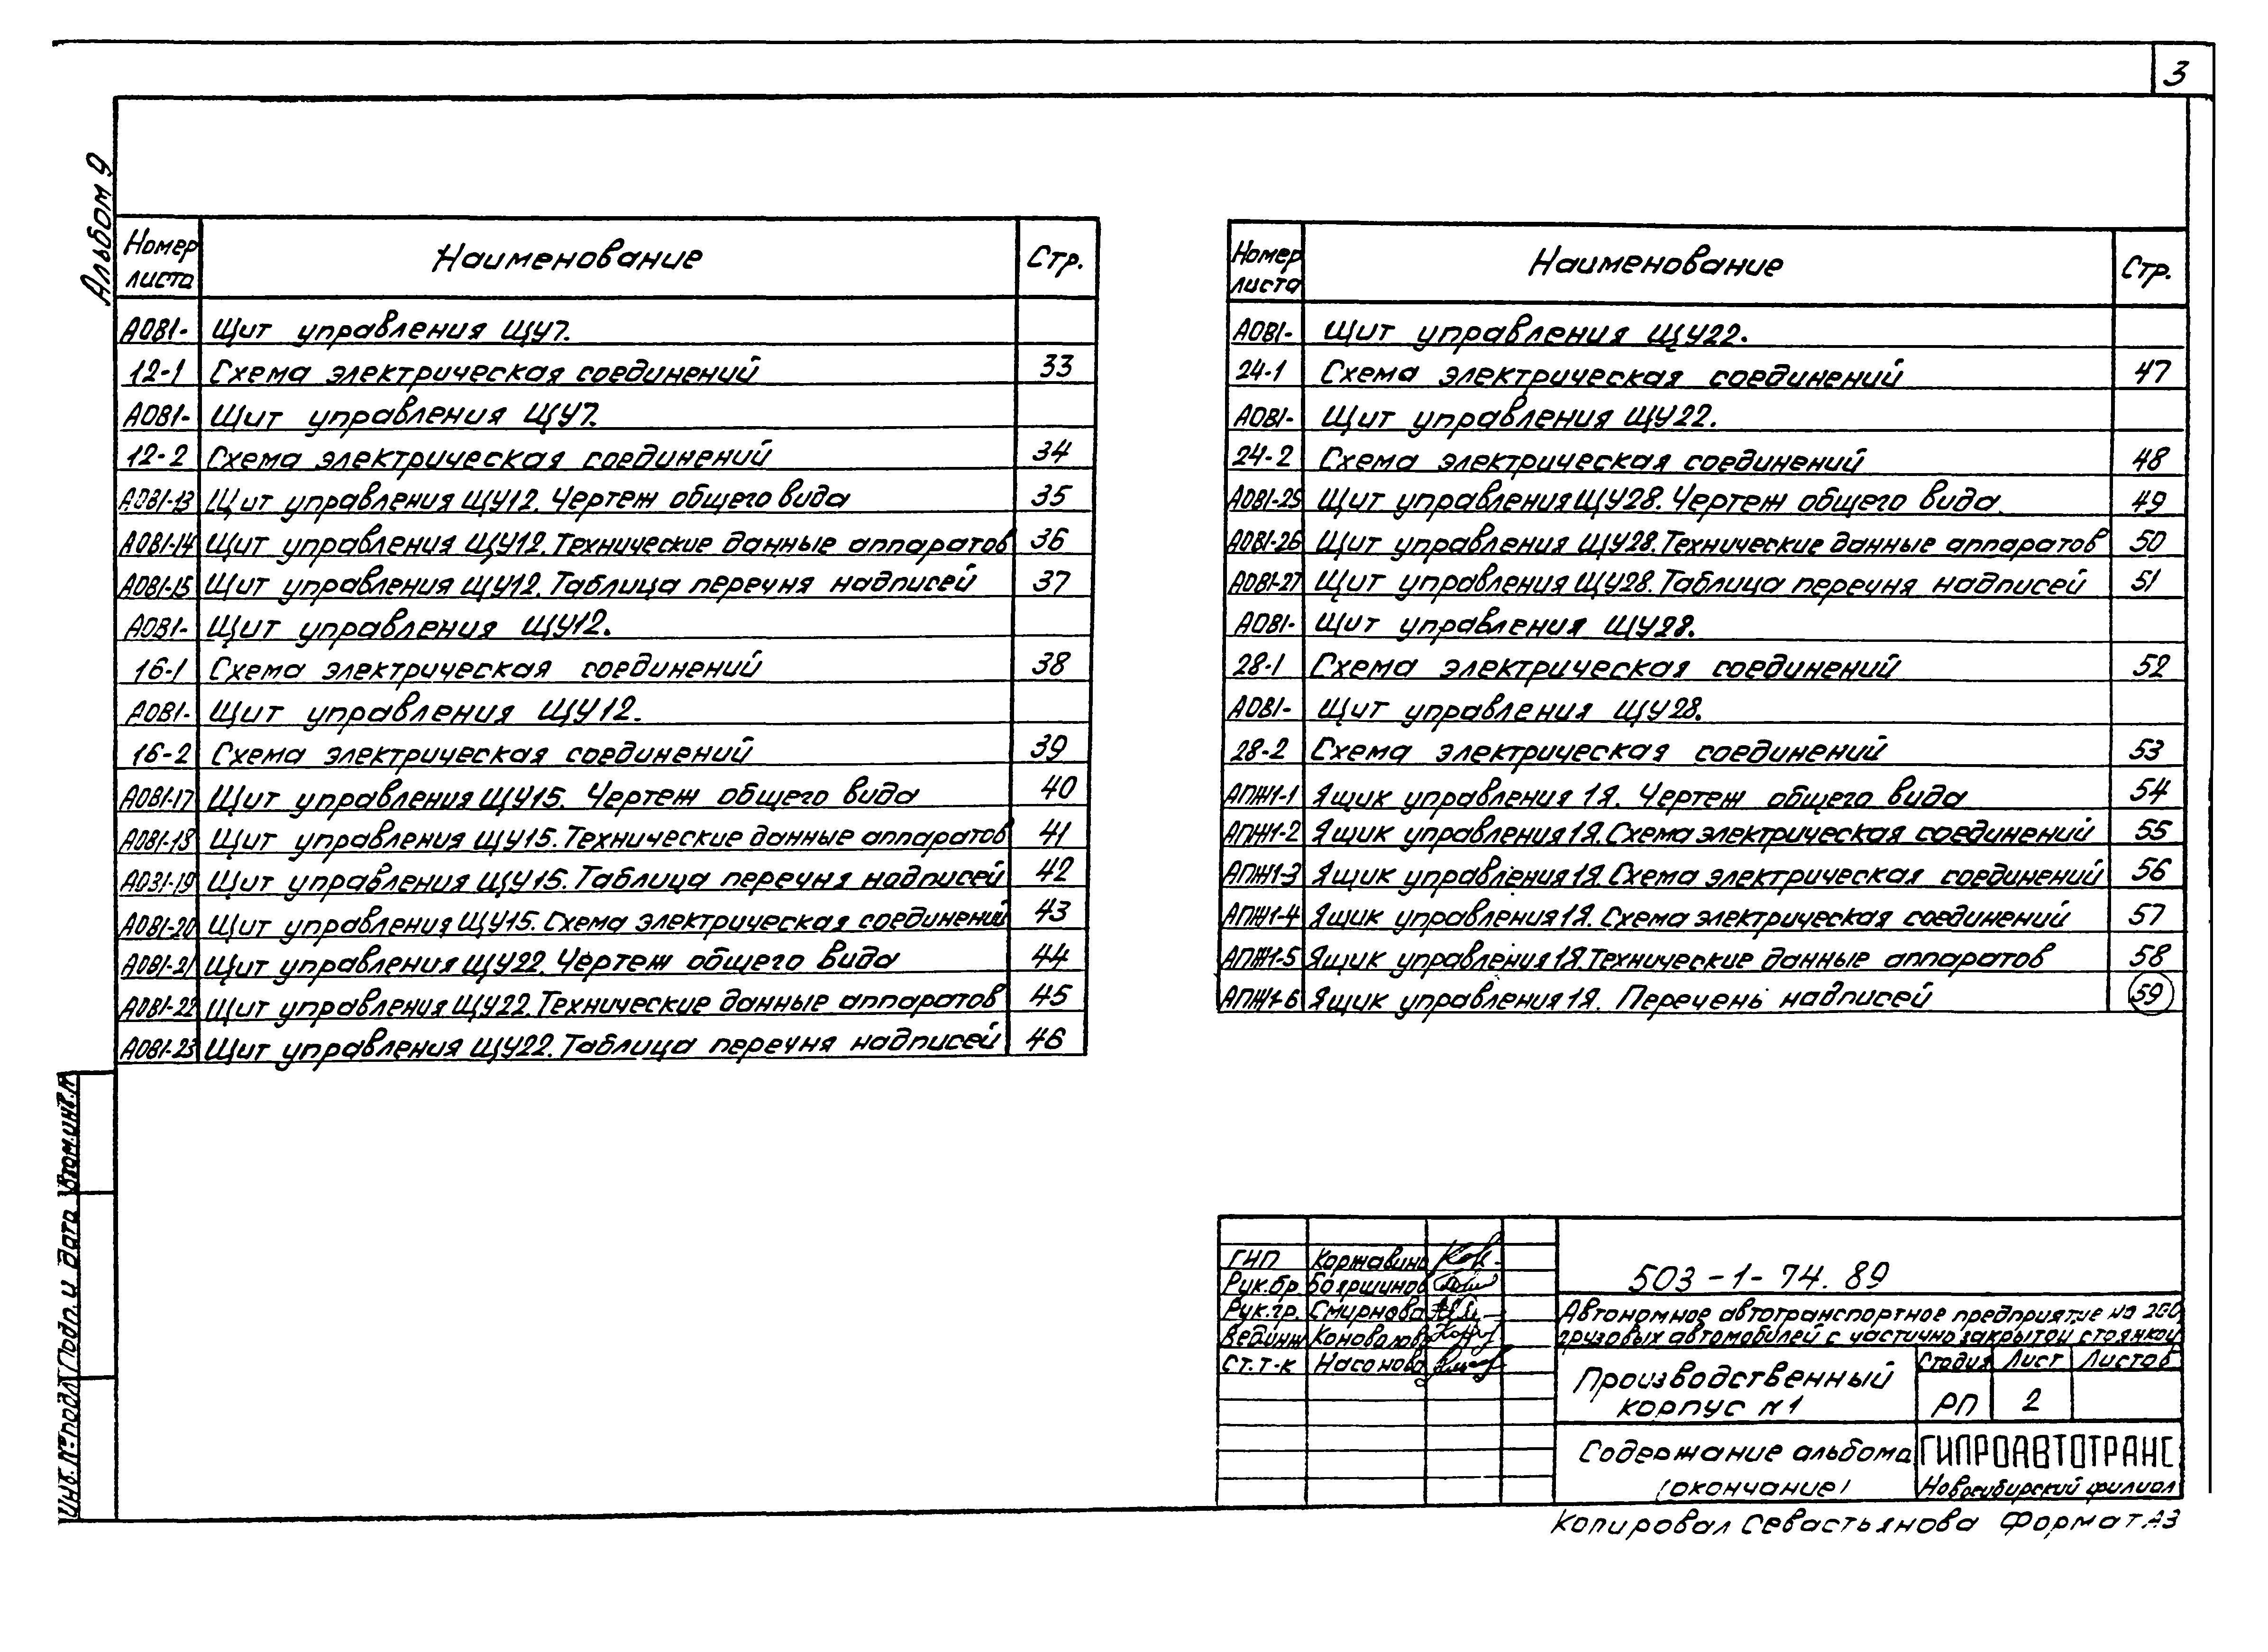 3
Альбом 9
Номер листа Наименование Стр.
АОВ1- Щит управления ЩУ7.
12-1 Схема электрическая соединений 33
АОВ1- Щит управления ЩУ7.
12-2 Схема электрическая соединений 34
АОВ1-13 Щит управления ЩУ12. Чертеж общего вида 35
АОВ1-14 Щит управления ЩУ12. Технические данные аппаратов 36
АОВ1-15 Щит управления ЩУ12. Таблица перечня надписей 37
АОВ1- Щит управления ЩУ12.
16-1 Схема электрическая соединений 38
АОВ1- Щит управления ЩУ12.
16-2 Схема электрическая соединений 39
АОВ1-17 Щит управления ЩУ15. Чертеж общего вида 40
АОВ1-18 Щит управления ЩУ15. Технические данные аппаратов 41
АОВ1-19 Щит управления ЩУ15. Таблица перечня надписей 42
АОВ1-20 Щит управления ЩУ15. Схема электрическая соединений 43
АОВ1-21 Щит управления ЩУ22. Чертеж общего вида 44
АОВ1-22 Щит управления ЩУ22. Технические данные аппаратов 45
АОВ1-23 Щит управления ЩУ22. Таблица перечня надписей 46
Номер листа Наименование Стр.
АОВ1- Щит управления ЩУ22.
24-1 Схема электрическая соединений 47
АОВ1- Щит управления ЩУ22.
24-2 Схема электрическая соединений 48
АОВ1-25 Щит управления ЩУ28. Чертеж общего вида. 49
АОВ1-26 Щит управления ЩУ28. Технические данные аппаратов 50
АОВ1-27 Щит управления ЩУ28. Таблица перечня надписей 51
АОВ1- Щит управления ЩУ28.
28-1 Схема электрическая соединений 52
АОВ1- Щит управления ЩУ28.
28-2 Схема электрическая соединений 53
АПЖ1-1 Ящик управления 1Я. Чертеж общего вида 54
АПЖ1-2 Ящик управления 1Я. Схема электрическая соединений 55
АПЖ1-3 Ящик управления 1Я. Схема электрическая соединений 56
АПЖ1-4 Ящик управления 1Я. Схема электрическая соединений 57
АПЖ1-5 Ящик управления 1Я. Технические данные аппаратов 58
АПЖ1-6 Ящик управления 1Я. Перечень надписей 59
Инв. № подл Подп. и дата Взам.инв.№
ГИП Коржавин
Рук.бр. Бояршинов
Рук.гр. Смирнова
Вед.инж Коновалова
Ст.т-к Насонова
503-1-74.89
Автономное автотранспортное предприятие на 200
грузовых автомобилей с частично закрытой стоянкой
Производственный
корпус №1
Стадия Лист Листов
РП 2
Содержание альбома
(окончание)
ГИПРОАВТОТРАНС
Новосибирский филиал
Копировал Севастьянова Формат А3